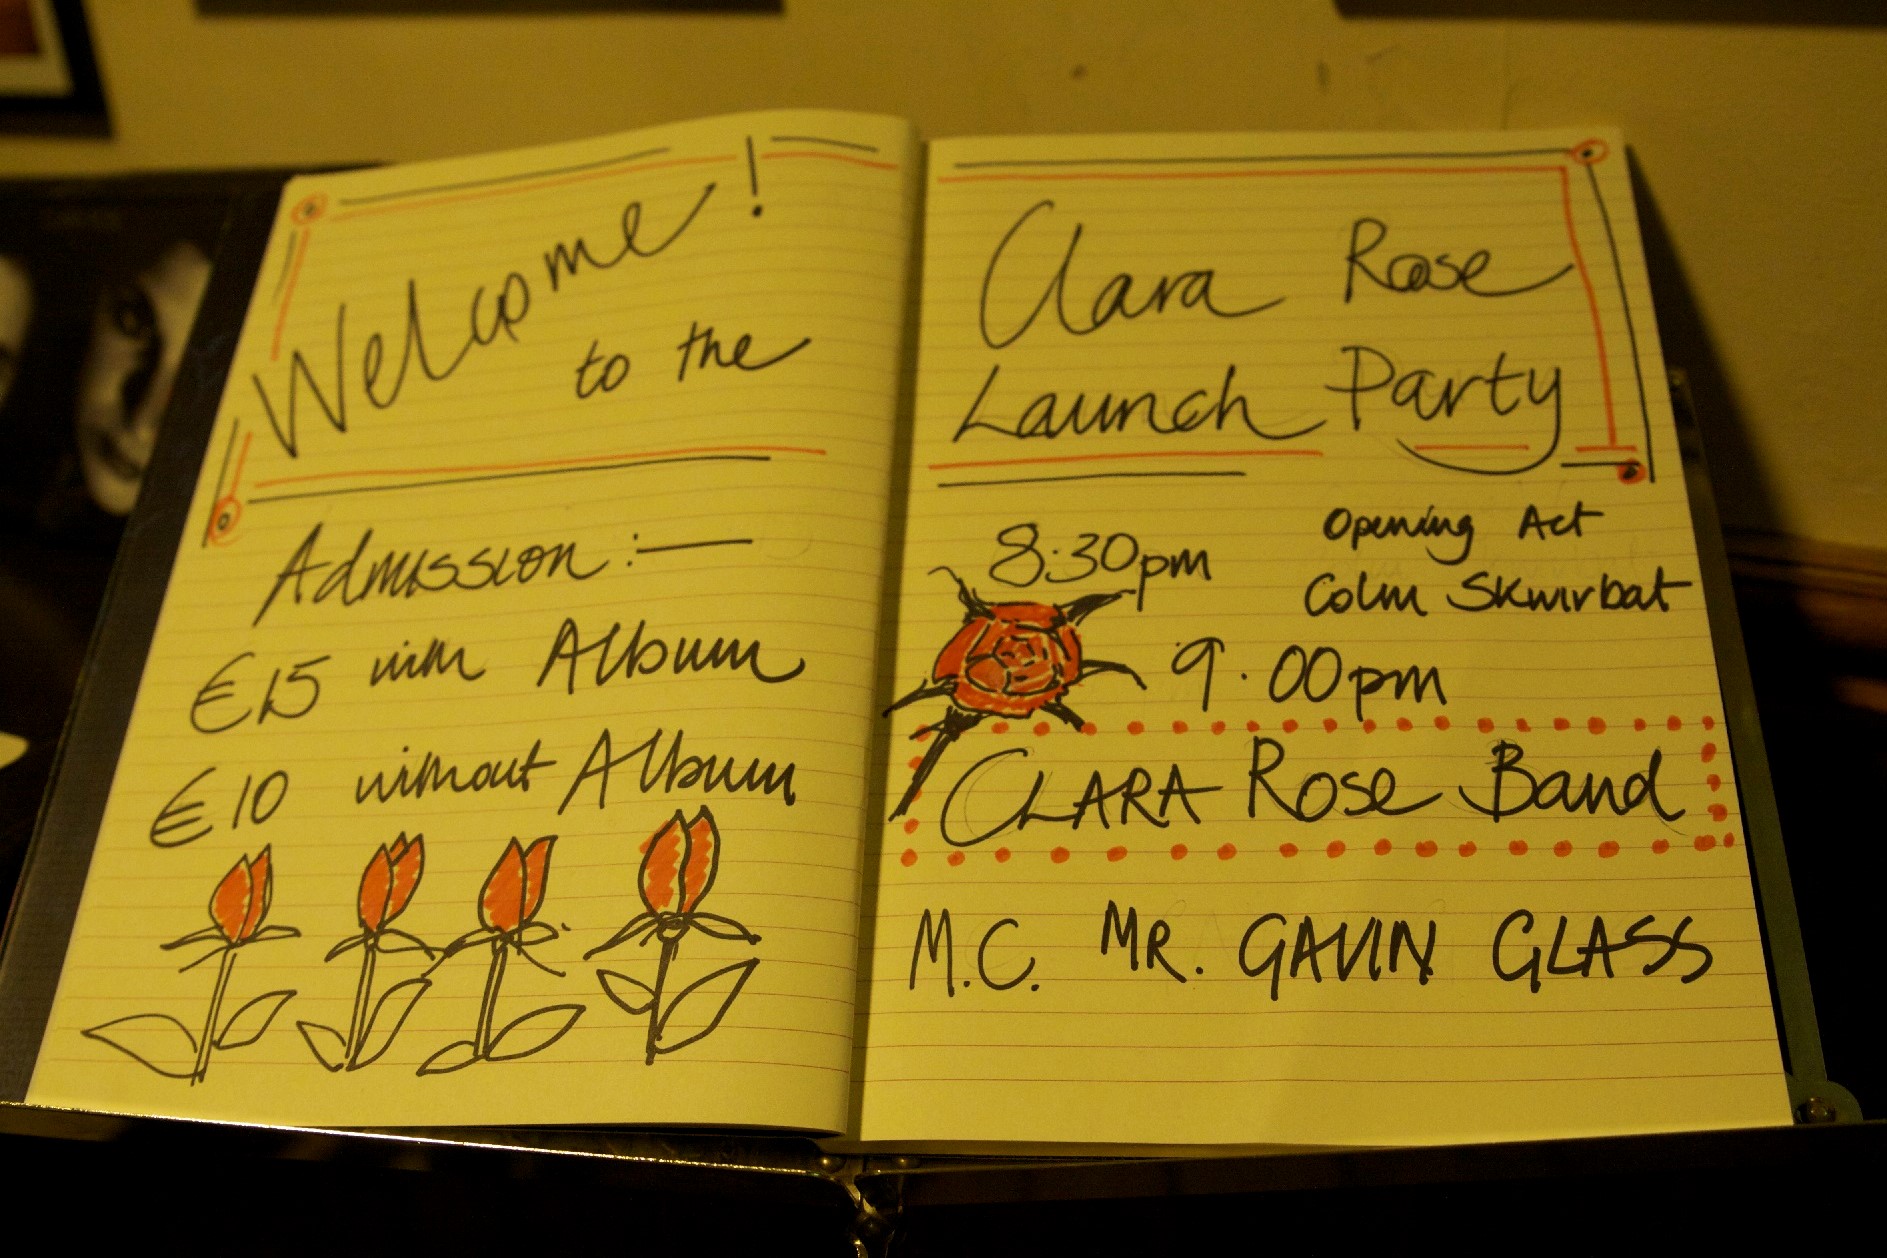 Welcome!
to the
Admission :—
€15 with Album
€10 without Album
Clara Rose
Launch Party
8:30pm Opening Act
Colm Skwirbat
9.00pm
CLARA Rose Band
M.C. MR. GAVIN GLASS